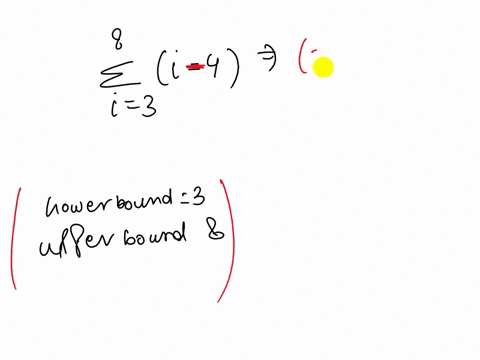 8
∑ (i-4) ⇒ (
i=3
lower bound = 3
upper bound 8